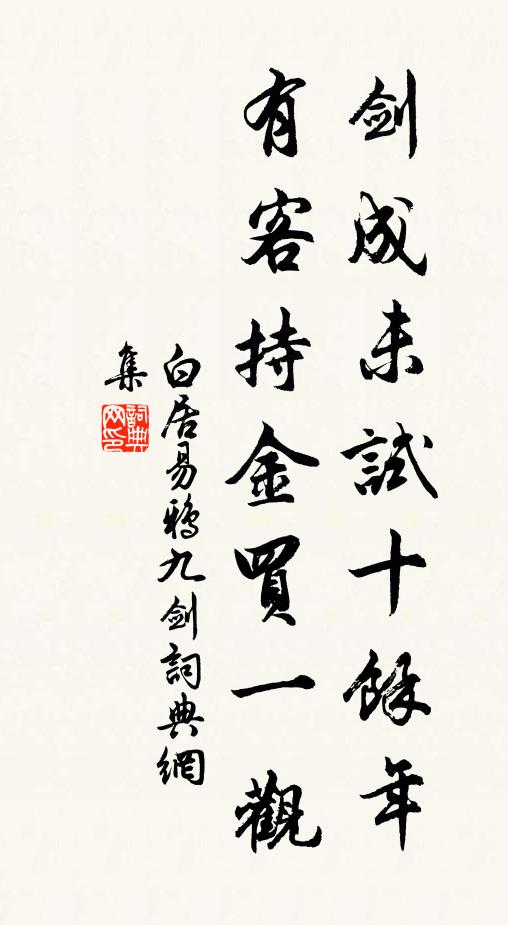 剑成未試十餘年
有客持金買一觀
白居易鴉九剑詞典網
集
詞典
网印